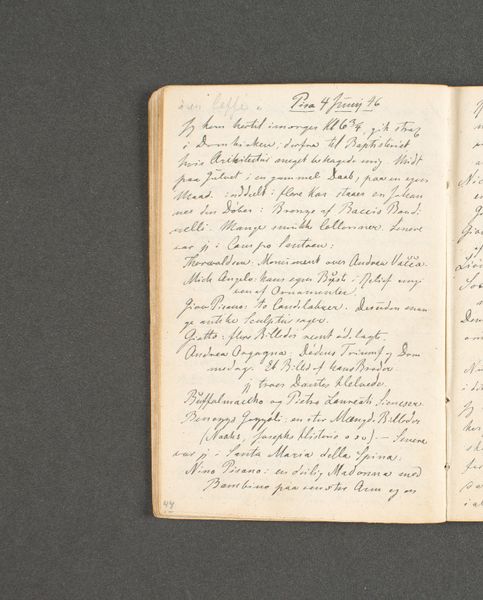 Pisa 4 Junij 96
Jeg kom hertil imorges Kl 6 3/4, gik strax
i Domkirken, derfra til Baptisteriet
hvis Arkitektur meget behagede mig. Midt
paa Gulvet i en gammel Daab, paa en egen
Maad inddelt i flere Kar staaer en Johan
nes den Døber i Bronze af Baccio Bandi
nelli. Mange smukke Collonner. Senere
var jeg i Campo Santoen:
Thorvaldsen: Monument over Andrea Vacca.
Mich Angelo: hans egen Büste i Relief
af Ornamenter.
Giov Pisano: to Candelabrer. Desuden man
ge antike Sculptur sager.
Giotto: flere Billeder remt ødelagt.
Andrea Orgagna. Dødens Triumf og Dom
medag. Et Billed af hans Broder
jeg troer Dantes Helvede.
Buffalmacko og Pietro Laureati, Sieneser
Benozzo Gozzoli: en stor Mængd. Billeder
(Noahs, Josephs Historie o s v). — Senere
var jeg i Santa Maria della Spina:
Nino Pisano: en deilig Madonna med
Bambino paa venstre Arm og en
44